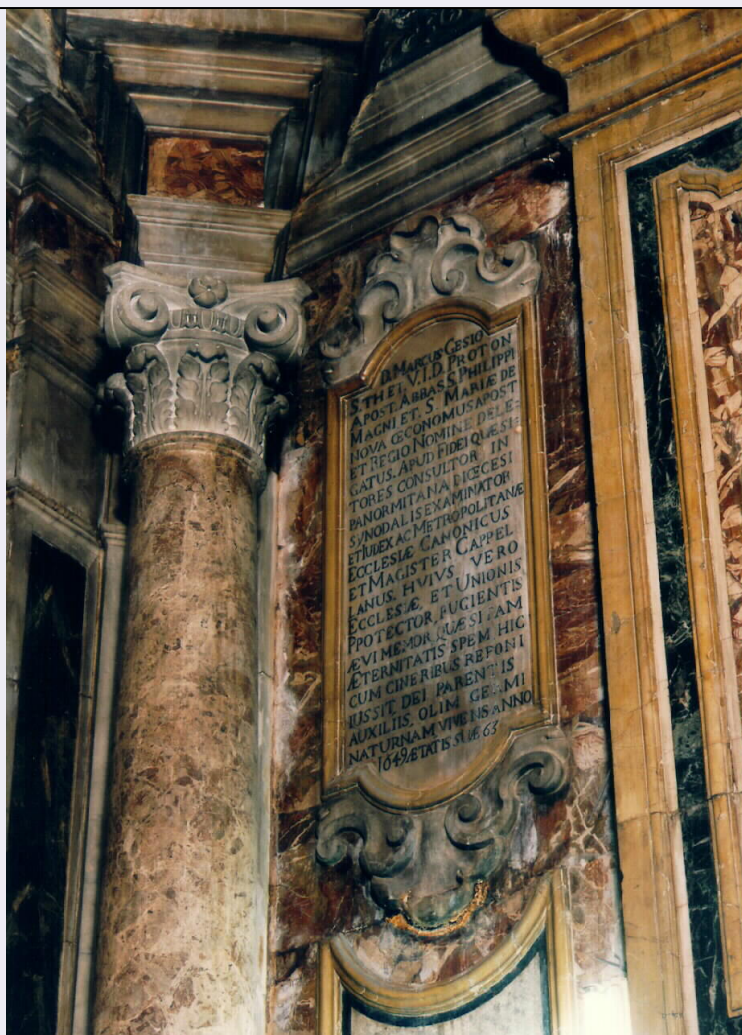 D. MARCUS GESIO
S. TH. ET. V. I. D. PROTON
APOST. ABBAS S. PHILIPPI
MAGNI ET. Sᴬ MARIÆ DE
NOVA ŒCONOMUS APOST
ET REGIO NOMINE DELE-
GATUS. APUD FIDEI QUÆSI-
TORES CONSULTOR IN
PANORMITANA DIŒCESI
SYNODALIS EXAMINATOR
ET IUDEX AC METROPOLITANÆ
ECCLESIÆ CANONICUS
ET MAGISTER CAPPEL
LANUS. HVIVS VERO
ECCLESIÆ, ET UNIONIS
PPOTECTOR, FUGIENTIS
ÆVI MEMOR, QUÆSITAM
ÆTERNITATIS SPEM HIC
CUM CINERIBUS REPONI
IUSSIT DEI PARENTIS
AUXILIIS, OLIM GEMI
NATURNAM VIVENS ANNO
1649 ÆTATIS SUÆ 63